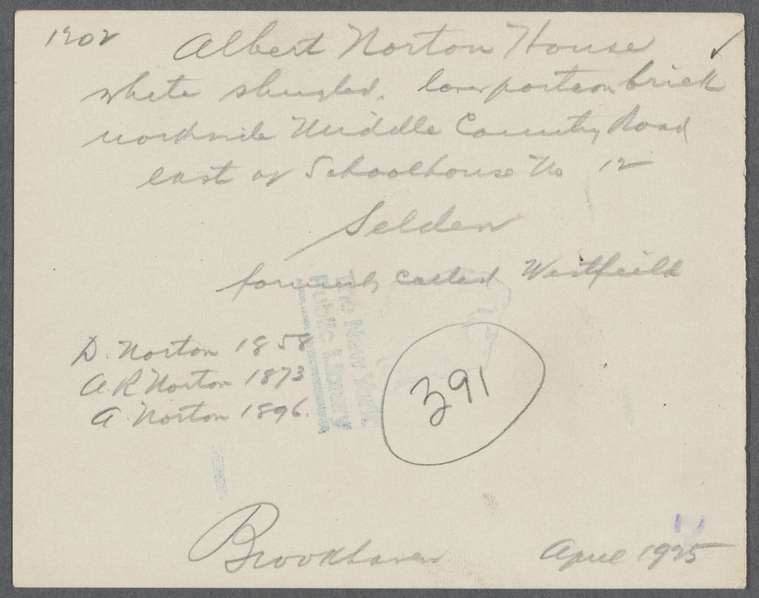 1902 Albert Norton House
white shingled. lower portion brick
northside Middle Country Road
east of Schoolhouse No 12
Selden
formerly called Westfield
The New York
Public Library
D. Norton 1858
A R Norton 1873
A. Norton 1896.
391
Brookhaven April 1925